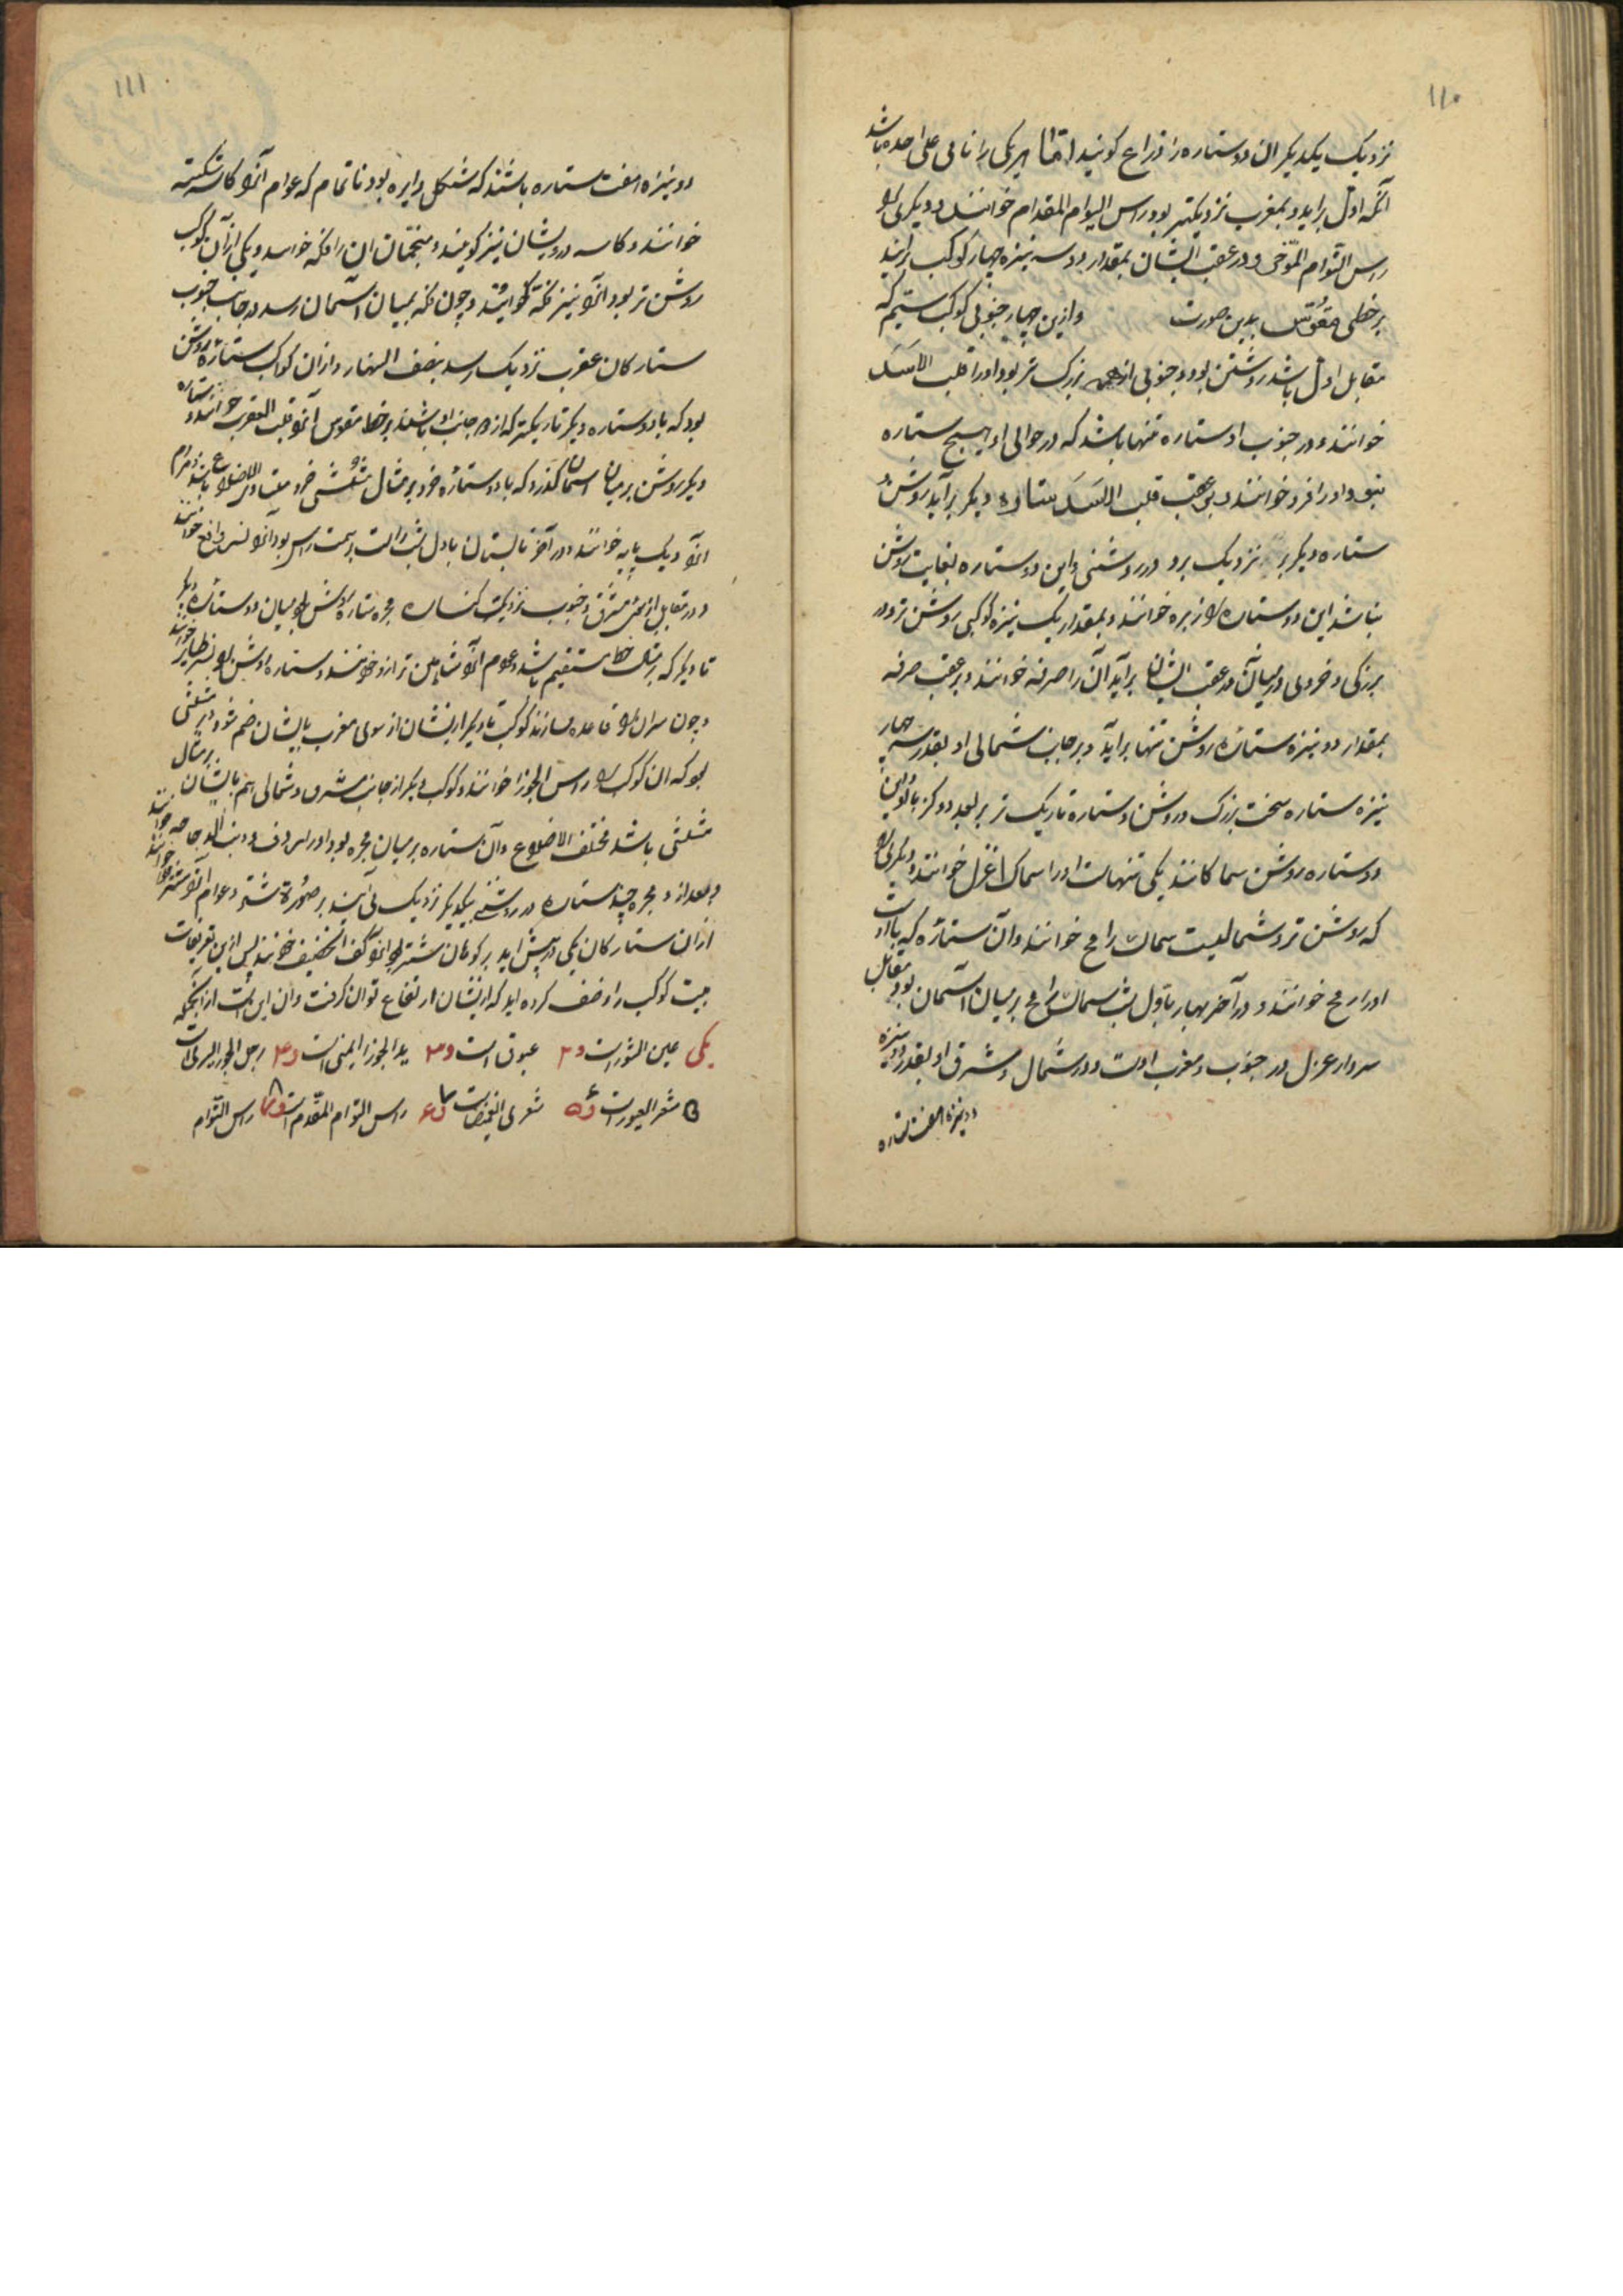 ۱۱۰
نزدیک یکدیگر ان دو ستاره را ذراع کویند اما هر یکی را نامی علی حده باشد
آنکه اول براید و بمغرب نزدیکتر بود راس التوام المقدام خوانند و دیکری را
راس التوام المؤخر و در عقب ایشان بمقدار دو سه نیزه چهار کوکب برایند
بر خطی مقوّس بدین صورت وازین چهار جنوبی کوکب سیم که
مقابل اول باشد روشن بود و جنوبی از همه بزرک تر بود اورا قلب الاسد
خوانند و در جنوب او ستاره تنها باشد که در حوالی او هیچ ستاره
نبود اورا فرد خوانند و بر عقب قلب الاسد ستاره دیکر براید روشن و
ستاره دیکر بر نزدیک بود در روشنی و این دو ستاره بغایت روشن
نباشد این دو ستاره را زبره خوانند و بمقدار یک نیزه کوکبی روشن تر در
بزرکی و خردی در میان در عقب ایشان براید آن را صرفه خوانند و بر عقب صرفه
بمقدار دو نیزه ستاره روشن تنها براید و بر جانب شمالی او بقدر سه چهار
نیزه ستاره سخت بزرک و روشن و ستاره تاریک تر بر بعد دو کز با او این
دو ستاره روشن سماکانند یکی تنهاست اورا سماک اعزل خوانند و دیکری را
که روشن تر و شمالیست سماک رامح خوانند و آن ستاره که با اوست
اورا رمح خوانند و در آخر بهار باول شب سماک رامح بر میان آسمان بود و مقابل
سر و اعزل در جنوب و مغرب اوست و در شمال و مشرق او بقدر دو نیزه
دو نیزه هفت ستاره
۱۱۱
دو نیزه هفت ستاره باشند که شکل دایره بود ناتمام که عوام آنرا کاسه شکسته
خوانند و کاسه درویشان نیز کویند و منجمان ان را فکه خوانند و یکی از آن کوکب
روشن تر بود انرا نیز فکه کویند و چون فکه بمیان آسمان رسد در جانب جنوب
ستارکان عقرب نزدیک رسد بنصف النهار و ازان کواکب ستاره روشن
بود که با دو ستاره دیکر تاریکتر که از دو جانب او باشند بر خط مقوس آنرا قلب العقرب خوانند و ستاره
دیکر روشن بر میان اسمان کذرد که با دو ستاره خرد بر مثال مثلثی خرد متساوی الاضلاع باشد و عوام
انرا دیک پایه خوانند و در آخر تابستان باول شب راست بر سمت راس بود آنرا نسر واقع خوانند
و در مقابل او سوی مشرق و جنوب نزدیک کناره مجره ستاره روشن بود میان دو ستاره دیکر
تا دیکر که بر مثال خط مستقیم باشد و عوام آنرا شاهین ترازو خوانند و ستاره روشن او نسر طایر خوانند
و چون نسران را قاعده سازند کوکب تا دیکر ازیشان از سوی مغرب بایشان ضم شود بر مثلثی
بود که ان کوکب را راس الجوزا خوانند و کوکب دیکر از جانب مشرق و شمالی هم بایشان بر مثال
مثلثی باشد مختلف الاضلاع و آن ستاره بر میان مجره بود اورا ردف و ذنب الدجاجه خوانند
و بعد از و مجره چند ستاره در روشنی بیکدیکر نزدیک می آیند بر صورة شتر و عوام آنرا شتر خوانند
ازان ستارکان یکی در پیش اید بر کوهان شتر بود انرا کف الخضیب خوانند پس ازین تعریفات
بیست کوکب را وصف کرده اید که ازیشان ارتفاع توان کرفت و ان این است از انجمله
یکی عین الثورست و ۲ عیوق است و ۳ ید الجوزا الیمنی است و ۴ رجل الجوزا الیسری است
۵ شعر العبورست و ۶ شعری الغمیضاست و ۷ راس التوام المقدم است و ۸ راس التوام